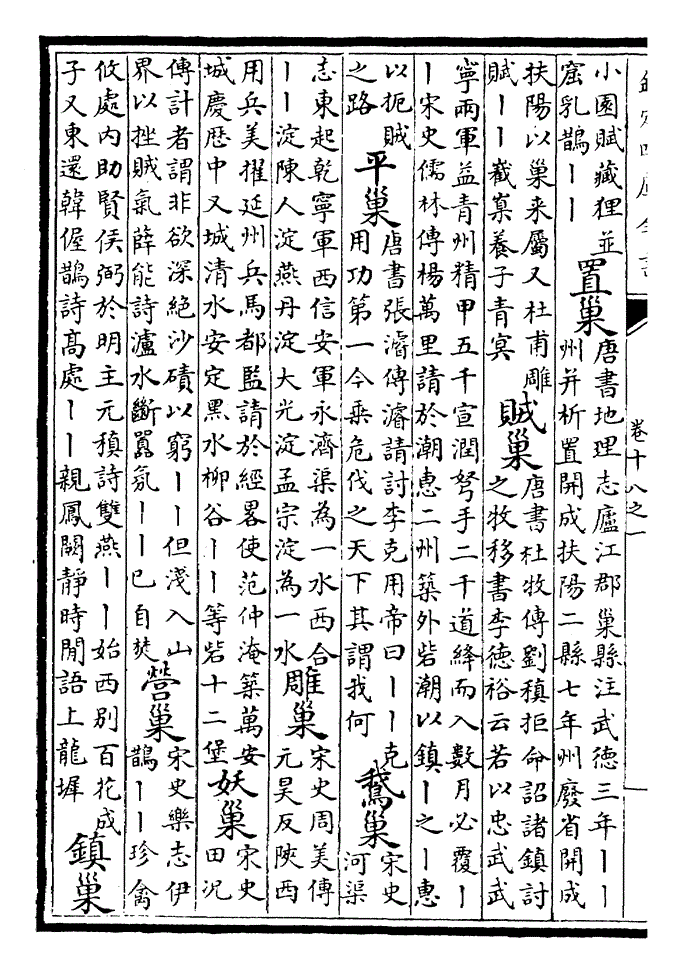 欽定四庫全書
卷十八之一
小園賦藏狸並
窟乳鵲丨丨
置巢
唐書地理志廬江郡巢縣注武德三年丨丨
州并析置開成扶陽二縣七年州廢省開成
扶陽以巢来屬又杜甫雕
賦丨丨巀嵲養子青冥
賊巢
唐書杜牧傳劉稹拒命詔諸鎮討
之牧移書李德裕云若以忠武武
寧兩軍益青州精甲五千宣潤弩手二千道絳而入數月必覆丨
丨宋史儒林傳楊萬里請於潮惠二州築外砦潮以鎮丨之丨惠
以扼賊
之路
平巢
唐書張濬傳濬請討李克用帝曰丨丨克
用功第一今乘危伐之天下其謂我何
鵞巢
宋史
河渠
志東起乾寧軍西信安軍永濟渠為一水西合
丨丨淀陳人淀燕丹淀大光淀孟宗淀為一水
雕巢
宋史周美傳
元昊反陝西
用兵美擢延州兵馬都監請於經畧使范仲淹築萬安
城慶歴中又城清水安定黑水柳谷丨丨等砦十二堡
妖巢
宋史
田況
傳計者謂非欲深絶沙磧以窮丨丨但淺入山
界以挫賊氣薛能詩瀘水斷嚻氛丨丨已自焚
營巢
宋史樂志伊
鵲丨丨珍禽
攸處内助賢侯弼於明主元稹詩雙燕丨丨始西别百花成
子又東還韓偓鵲詩髙處丨丨親鳳闕靜時閒語上龍墀
鎮巢